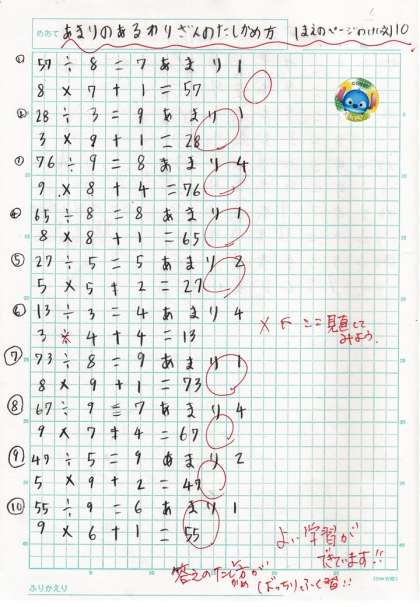 めあて あまりのあるわりざんのたしかめ方
① 57 ÷ 8 = 7 あまり 1
8 × 7 + 1 = 57
② 28 ÷ 3 = 9 あまり 1
3 × 9 + 1 = 28
76 ÷ 9 = 8 あまり 4
9 × 8 + 4 = 76
65 ÷ 8 = 8 あまり 1
8 × 8 + 1 = 65
⑤ 27 ÷ 5 = 5 あまり 2
5 × 5 + 2 = 27
⑥ 13 ÷ 3 = 4 あまり 4
3 × 4 + 4 = 13
× ← ここ見直して
みよう。
⑦ 73 ÷ 8 = 9 あまり 1
8 × 9 + 1 = 73
⑧ 67 ÷ 9 = 7 あまり 4
9 × 7 + 4 = 67
⑨ 47 ÷ 5 = 9 あまり 2
5 × 9 + 2 = 47
⑩ 55 ÷ 9 = 6 あまり 1
9 × 6 + 1 = 55
よい学習が
できています!!
答えのたしかめ方が
ばっちり
ふりかえり